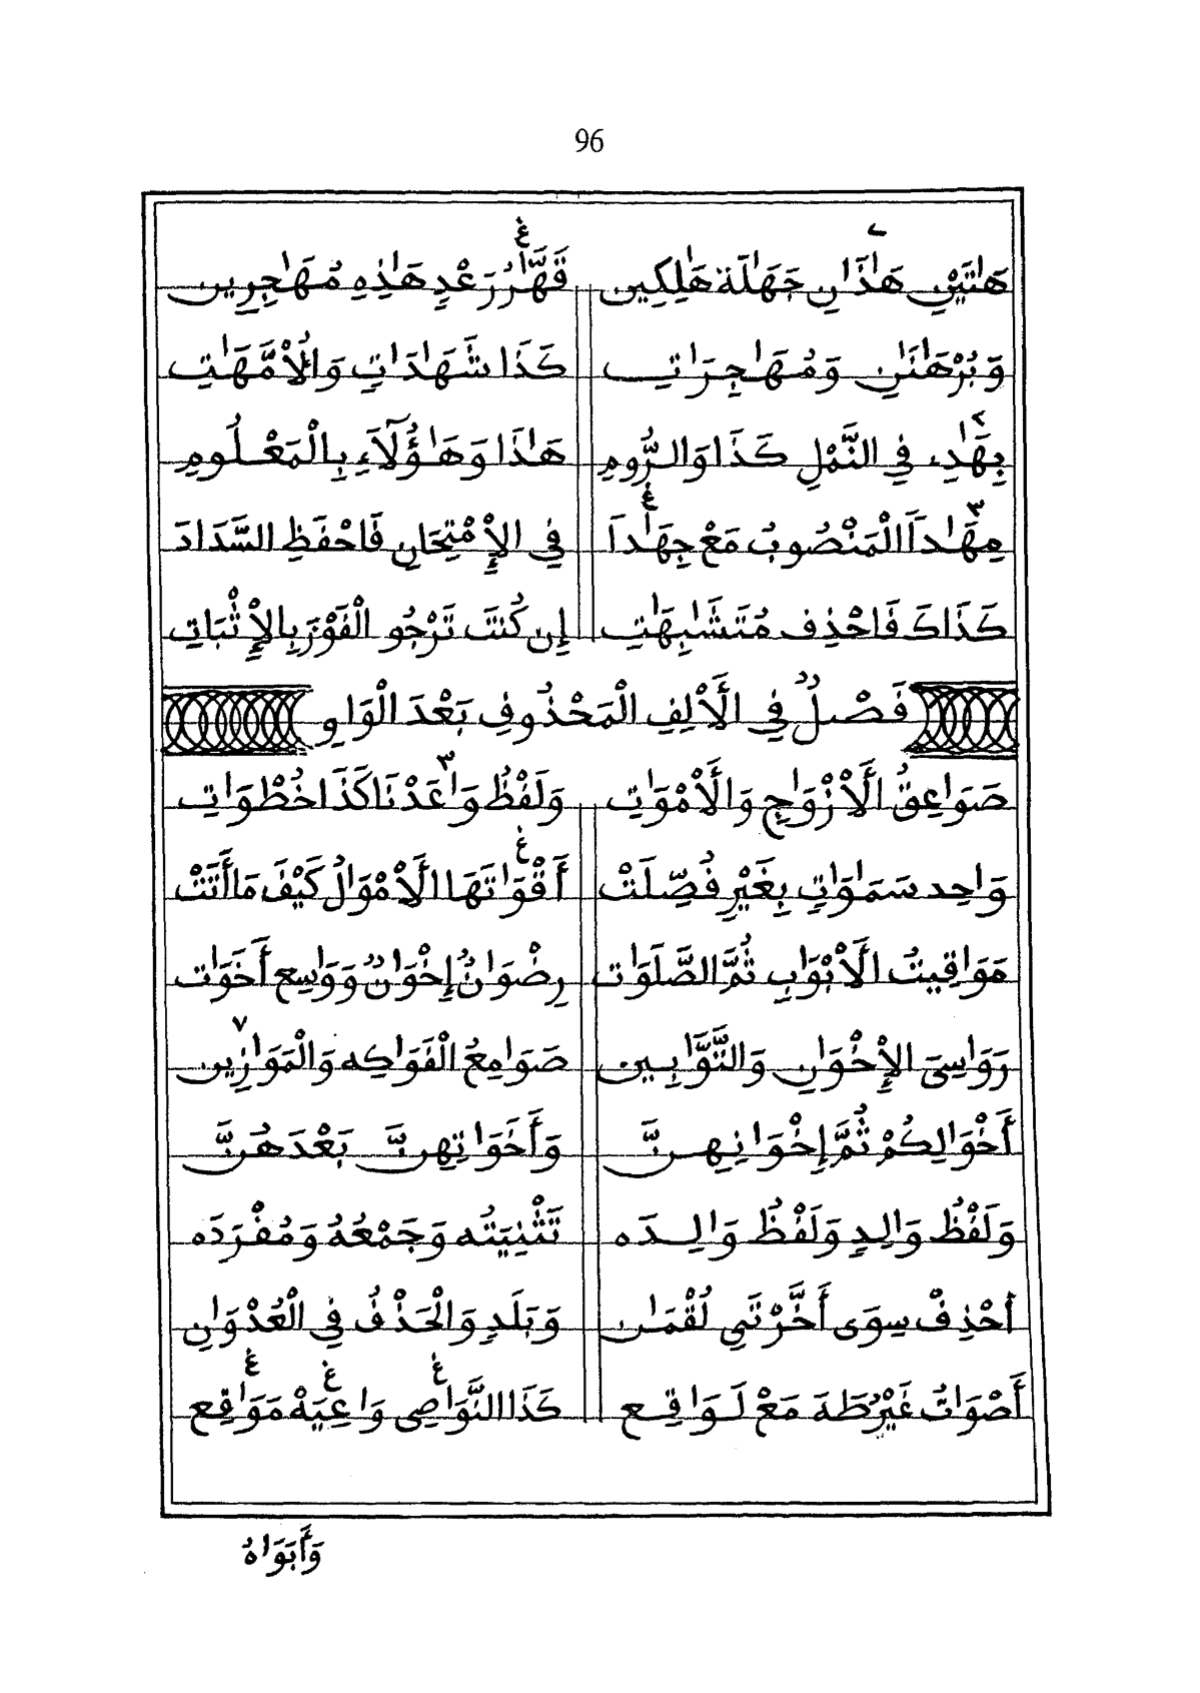 96
هَٰتَيْنِ هَٰذَٰنِ جَهَٰلَة هَٰلِكِين قَهَّٰرُ رَعْدٍ هَٰذِهِ مُهَٰجِرِين
وَبُرْهَٰنَٰنِ وَمُهَٰجِرَاتِ كَذَا شَهَٰدَاتٍ وَالْأُمَّهَٰتِ
بِهَٰدِ فِي النَّمْلِ كَذَا وَالرُّومِ هَٰذَا وَهَٰؤُلَآءِ بِالْمَعْلُومِ
مِهَٰداً الْمَنْصُوبُ مَعْ جِهَٰداً فِي الْإِمْتِحَانِ فَاحْفَظِ السَّدَادَ
كَذَاكَ فَاحْذِف مُتَشَٰبِهَٰتِ إِن كُنتَ تَرْجُو الْفَوْزَ بِالْإِثْبَاتِ
فَصْلٌ فِي الْأَلِفِ الْمَحْذُوفِ بَعْدَ الْوَاوِ
صَوَٰعِقُ الْأَزْوَٰجِ وَالْأَمْوَٰتِ وَلَفْظُ وَٰعَدْنَا كَذَا خُطْوَٰتِ
وَٰحِد سَمَٰوَٰتٍ بِغَيْرِ فُصِّلَتْ أَقْوَٰتَهَا الْأَمْوَٰلُ كَيْفَ مَا أَتَتْ
مَوَٰقِيتُ الْأَبْوَٰبِ ثُمَّ الصَّلَوَٰت رِضْوَٰنٌ إِخْوَٰنٌ وَوَٰسِع أَخَوَٰت
رَوَٰسِيَ الْإِخْوَٰنِ وَالتَّوَّٰبِين صَوَٰمِعُ الْفَوَٰكِه وَالْمَوَٰزِين
أَخْوَٰلِكُمْ ثُمَّ إِخْوَٰنِهِنَّ وَأَخَوَٰتِهِنَّ بَعْدَهُنَّ
وَلَفْظُ وَٰلِدٍ وَلَفْظُ وَٰلِدَه تَثْنِيَتُه وَجَمْعُهُ وَمُفْرَدَه
اَحْذِفْ سِوَى أَخَّرْتَنِي لُقْمَٰن وَبَلَدٍ وَالْحَذْفُ فِي الْعُدْوَٰنِ
أَصْوَٰتُ غَيْرُ طَهَ مَعْ لَوَٰقِع كَذَا النَّوَٰصِي وَٰعِيَهْ مَوَٰقِع
وَأَبَوَٰهُ